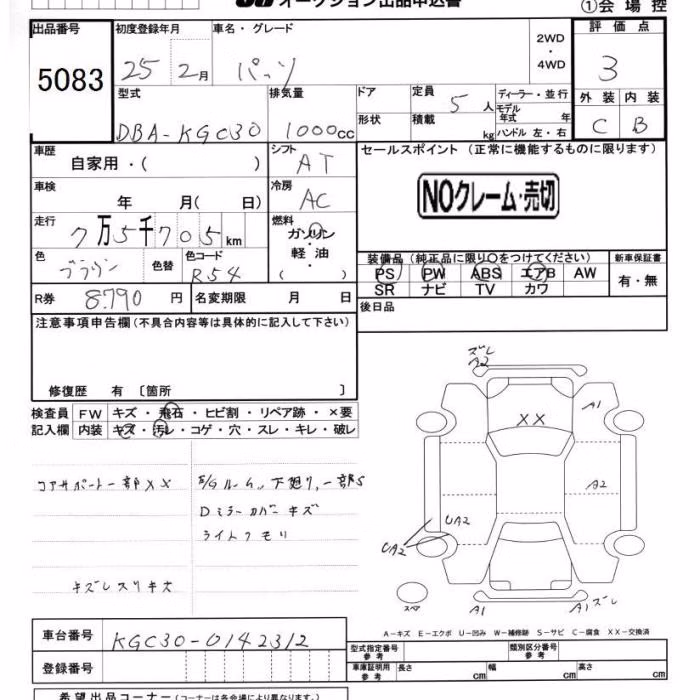 オークション出品申込書
①会場控
出品番号 初度登録年月 車名・グレード 2WD ・ 4WD 評価点
5083 25 2月 パッソ 3
型式 排気量 ドア 定員 5人 ディーラー・並行 外装 内装
DBA-KGC30 1000cc 形状 積載 kg モデル年式 年 C B
ハンドル 左・右
車歴 自家用・( ) シフト AT セールスポイント (正常に機能するものに限ります)
車検 年 月( 日) 冷房 AC NOクレーム・売切
走行 7万5千705km 燃料 ガソリン・軽油 ( )
色 ブラウン 色替 色コード R54 装備品(純正品に限り○をつけてください) 新車保証書
PS PW ABS エアB AW 有・無
SR ナビ TV カワ
R券 8.790円 名変期限 月 日 後日品
注意事項申告欄(不具合内容等は具体的に記入して下さい)
修復歴 有 〔箇所 〕
検査員 FW キズ・飛石・ヒビ割・リペア跡・×要
記入欄 内装 キズ・汚レ・コゲ・穴・スレ・キレ・破レ
コアサポート一部XX E/Gルーム、下廻り、一部S
Dミラーカバーキズ
ライトクモリ
キズレスリキズ
ズレ
A2
XX
A1
A2
UA2
UA2
スペア
A1
A1ズレ
A-キズ E-エクボ U-凹み W-補修跡 S-サビ C-腐食 XX-交換済
車台番号 KGC30-0142312 型式指定番号 参考 類別区分番号 参考
登録番号 車庫証明用 参考 長さ cm 幅 cm 高さ cm
希望出品コーナー(コーナーは各会場により異なります。)